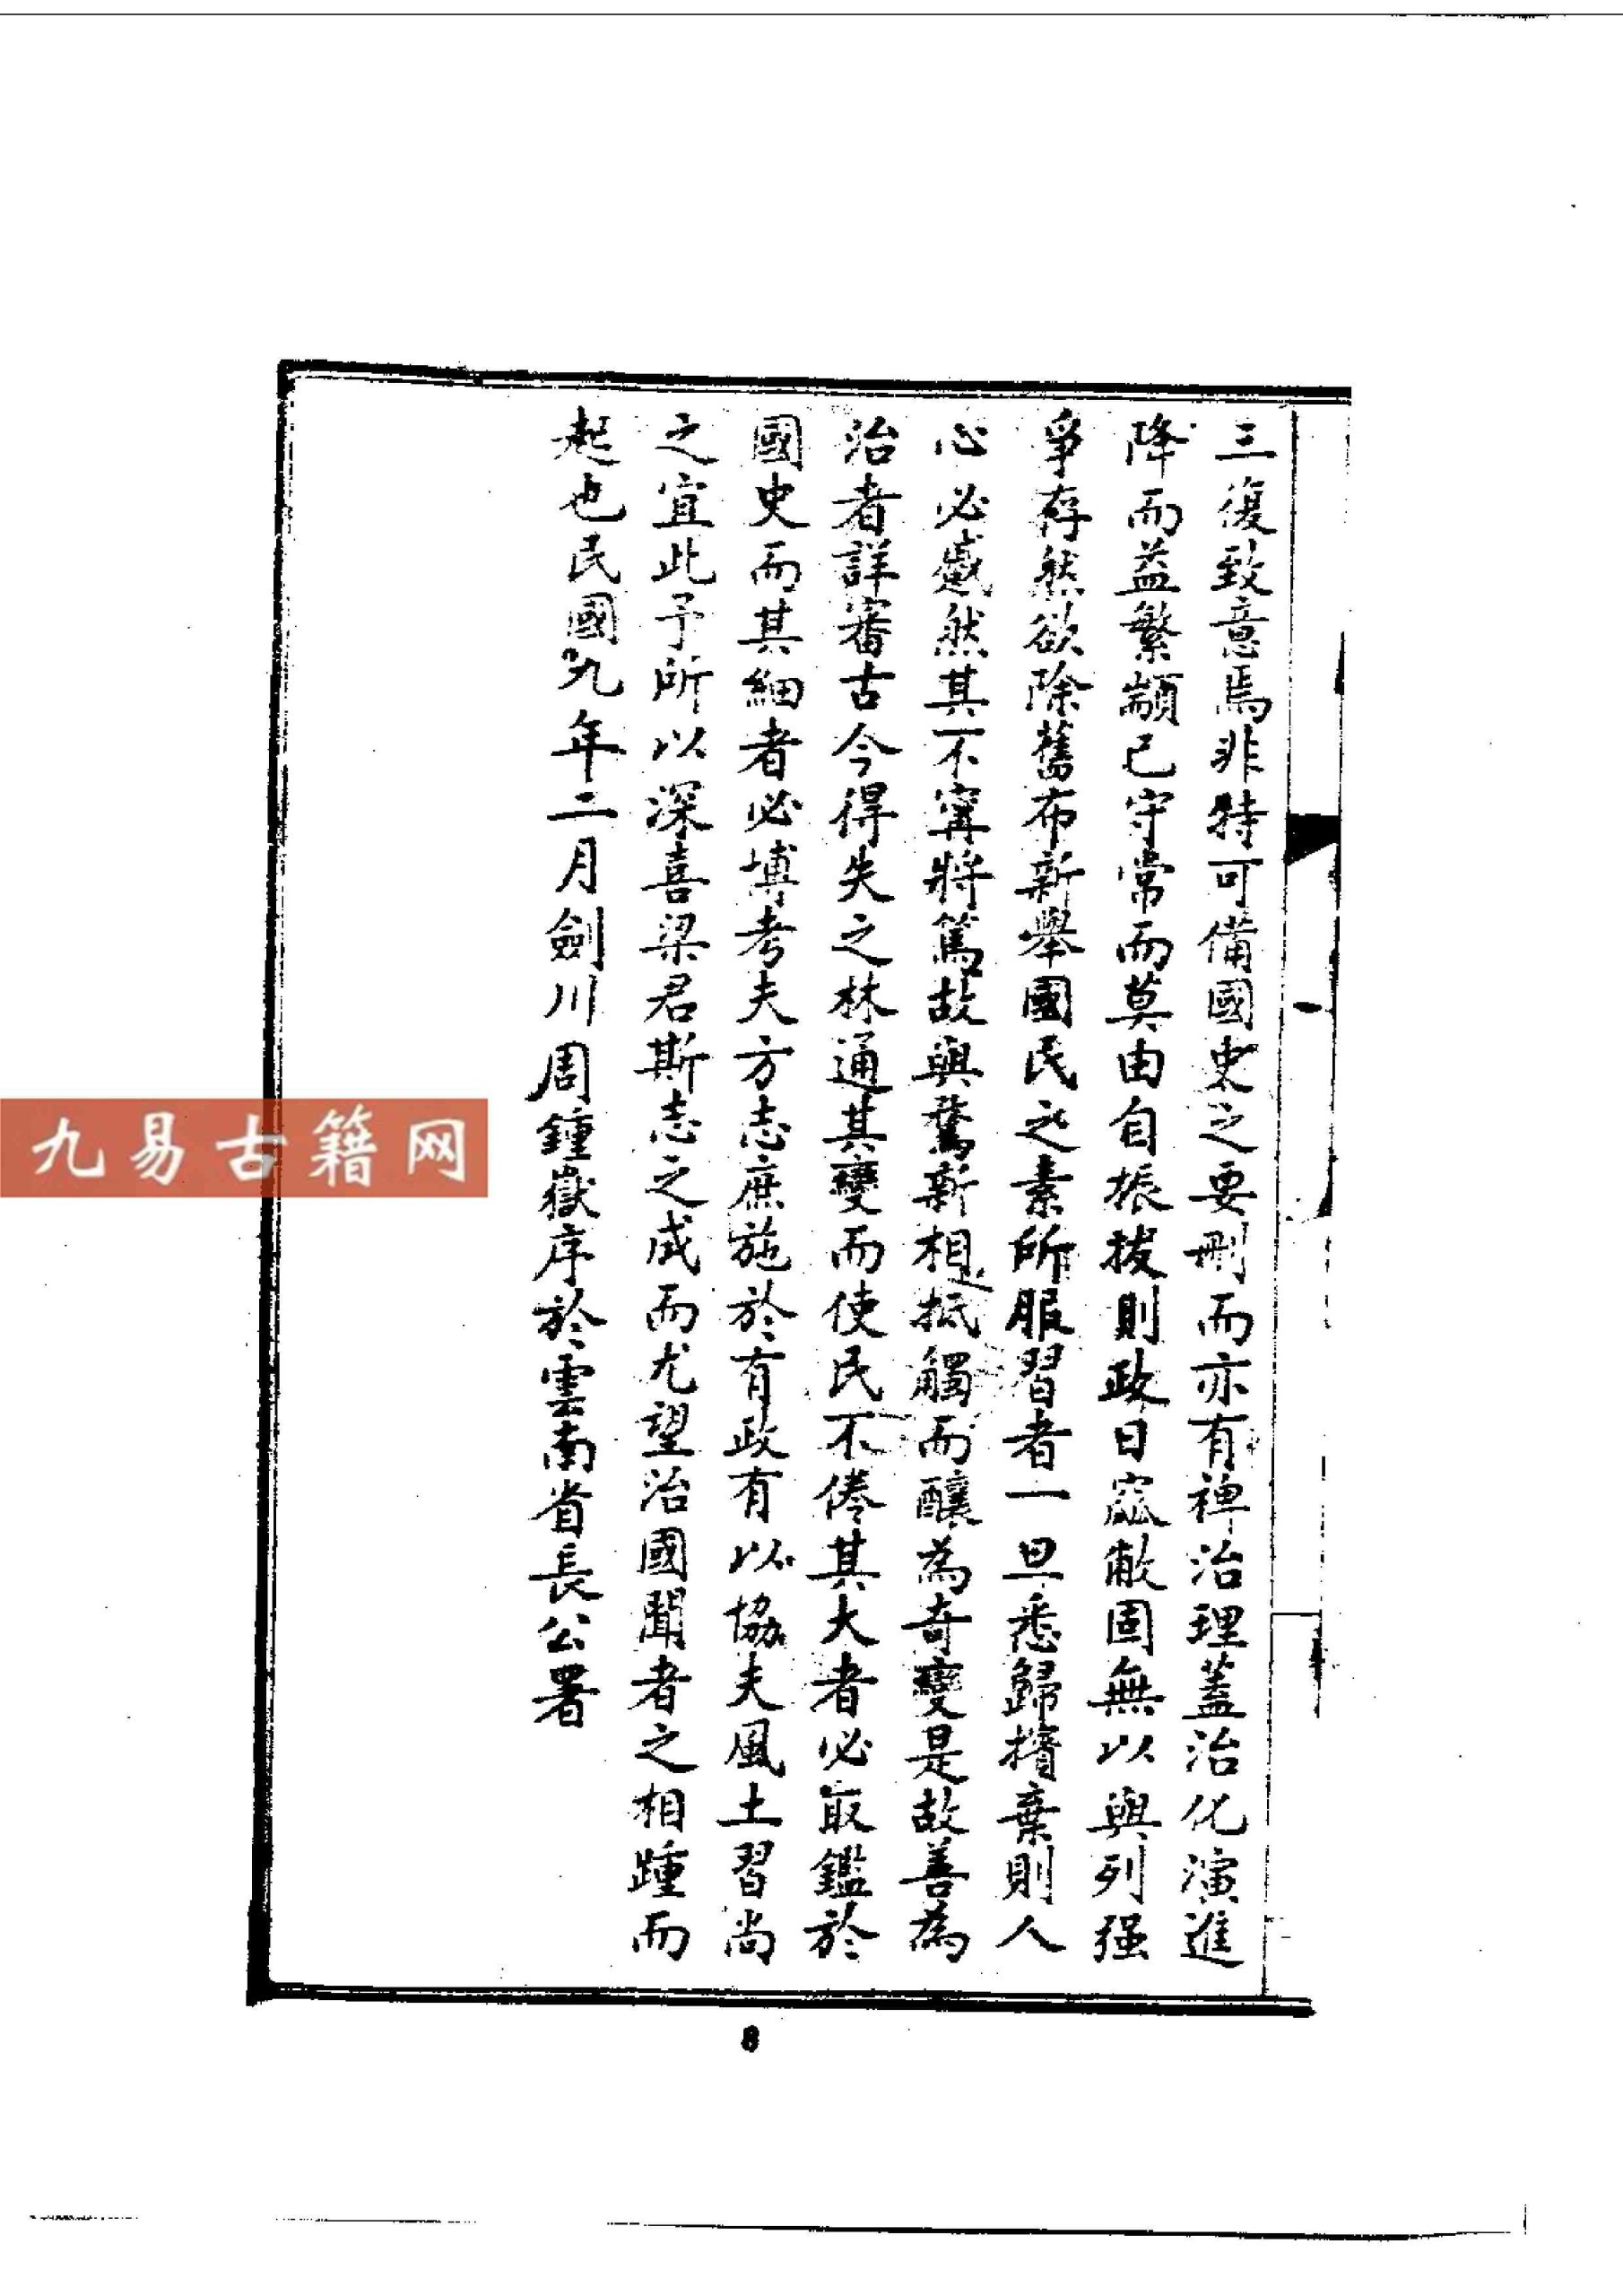 三復致意焉非特可備國史之要刪而亦有裨治理蓋治化演進
降而益繁顓己守常而莫由自振拔則政日窳敝固無以與列强
爭存然欲除舊布新舉國民之素所服習者一旦悉歸擯棄則人
心必蹙然其不寧將篤故與騖新相抵觸而釀為奇變是故善為
治者詳審古今得失之林通其變而使民不倦其大者必取鑑於
國史而其細者必博考夫方志庶施於有政有以協夫風土習尚
之宜此予所以深喜梁君斯志之成而尤望治國聞者之相踵而
起也民國九年二月劍川周鍾嶽序於雲南省長公署
九易古籍网
8